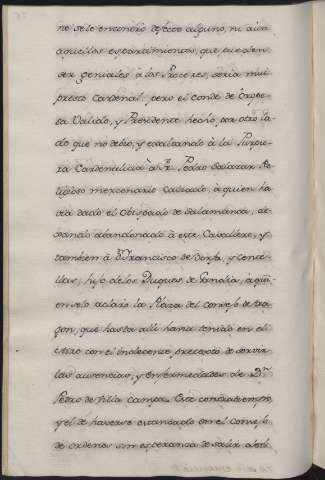 no se le encontró defecto alguno, ni aun
aquellos esparcimientos, que suelen
ser geniales à los Proceres, seria mui
presto Cardenal, pero el conde de Orope-
sa Valido, y Presidente hechò por otro la-
do que no debio, y exaltando à la Purpu-
ra Cardenalicia à Fr. Pedro Salazar Re-
ligioso mercenario Calzado, à quien ha
via dado el Obispado de Salamanca, de-
xando abandonado à este Cavallero, y
tambien à Dn. Francisco de Borja, y Cente-
llas, hijo de los Duques de Gandia, à qui-
en solo aclarò la Plaza del Consejo de Ara-
gon, que hasta alli havia tenido en el
Retiro con el indecente precepto de servir
las ausencias, y enfermedades de Dn.
Pedro de Villa Campa. Este contratiempo
y el de haverse estancado en el Consejo
de ordenes sin esperanza de salir